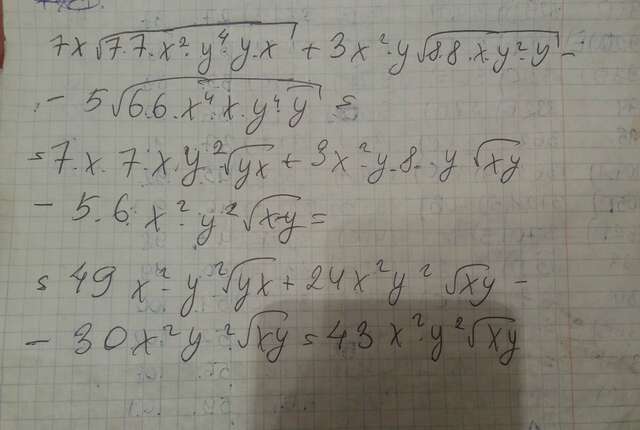 7x√(7·7·x²·y⁴·y·x) + 3x²·y√(8·8·x·y²·y) -
- 5√(6·6·x⁴·x·y⁴·y) =
= 7·x·7·x·y²√(yx) + 3x²·y·8·y √(xy)
- 5·6·x²·y²√(x·y) =
= 49 x²·y²√(yx) + 24x²y² √(xy) -
- 30x²y²√(xy) = 43 x²·y²√(xy)